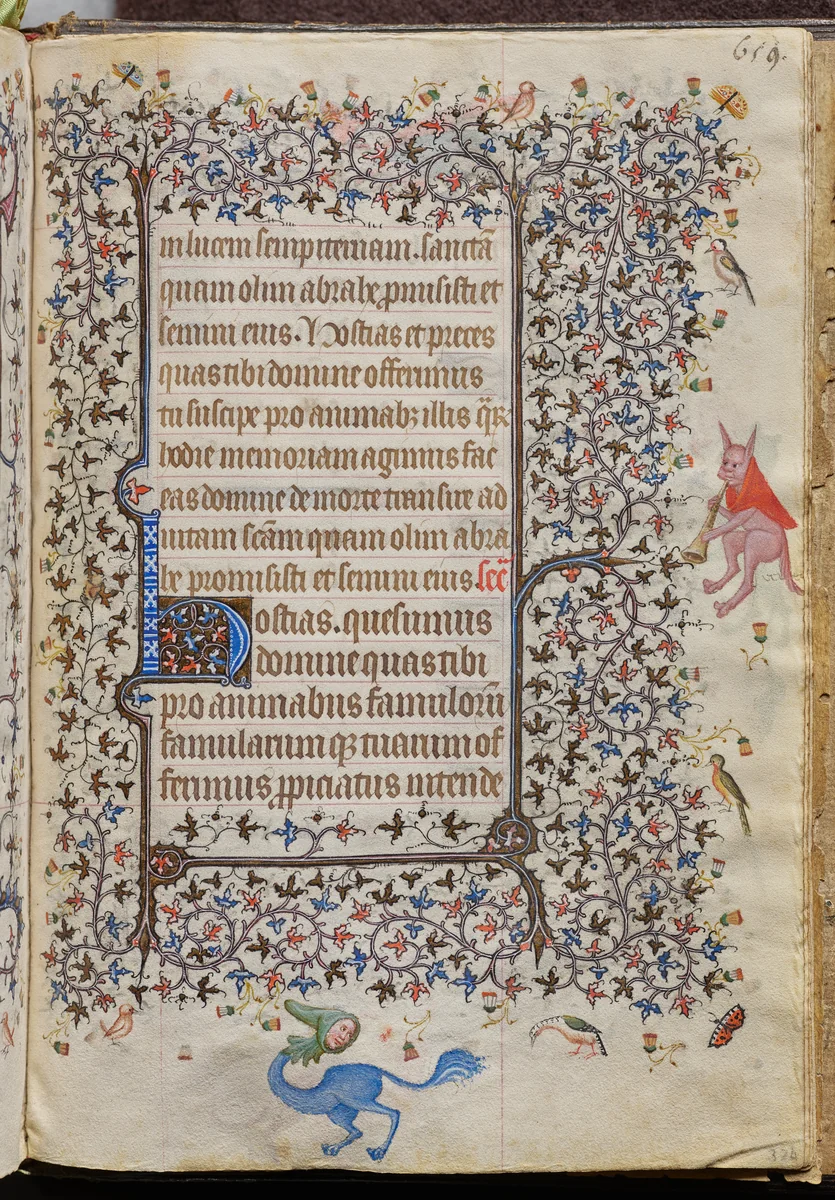 659.
in lucem sempiternam. sanctā
quam olim abrahe ꝓmisisti et
semini eius. Hostias et preces
quas tibi domine offerimus
tu suscipe pro animabꝫ illis q̄ꝝ
hodie memoriam agimus fac
eas domine de morte transire ad
uitam sc̄am quam olim abra
he promisisti et semini eius. sec̄
Hostias. quesumus
domine quas tibi
pro animabus famuloꝝ̄
famularumqꝫ tuarum of
ferimus ꝓpiciatus intende
324